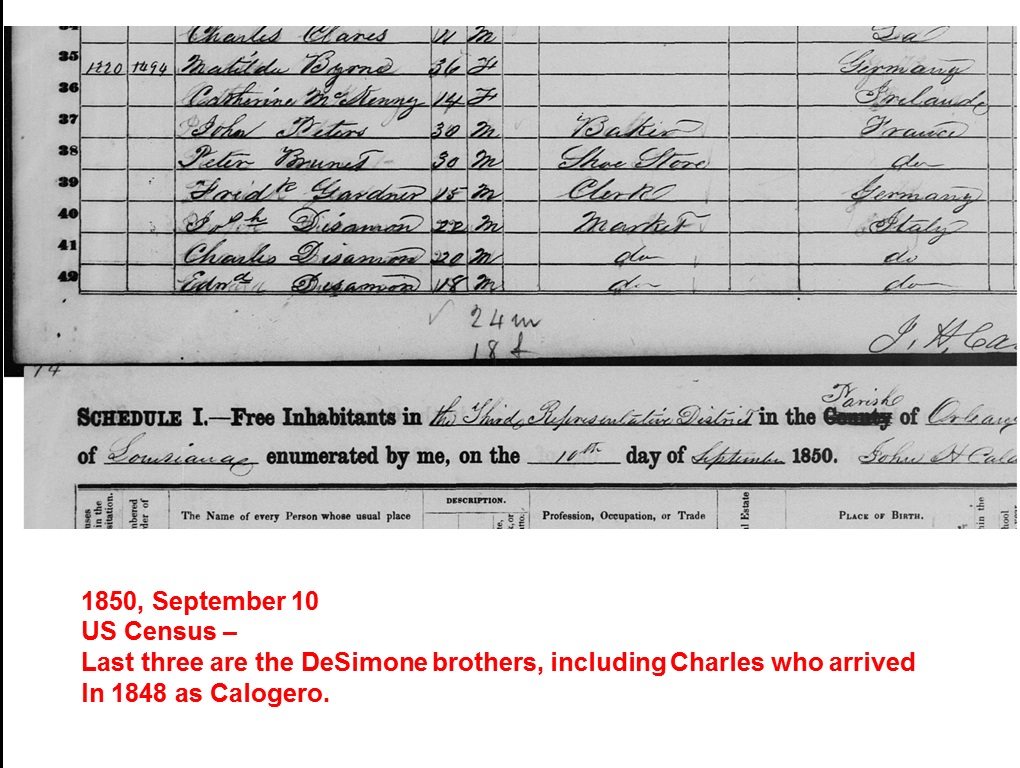 Charles Clares 11 M La
35 1220 1494 Matilda Byrne 36 F Germany
36 Catherine McKenny 14 F Ireland
37 John Peters 30 M Baker France
38 Peter Brunet 30 M Shoe Store do
39 Fridk Gardner 15 M Clerk Germany
40 Josph Disamon 22 M Market Italy
41 Charles Disamon 20 M do do
42 Edwd Disamon 18 M do do
24 m
18 f
J. H. Ca
74
Parish
SCHEDULE I.—Free Inhabitants in the Third Representative District in the County of Orleans
of Louisiana enumerated by me, on the 10th day of September 1850. John H Cal
DESCRIPTION.
The Name of every Person whose usual place Profession, Occupation, or Trade Estate PLACE OF BIRTH.
1850, September 10
US Census –
Last three are the DeSimone brothers, including Charles who arrived
In 1848 as Calogero.